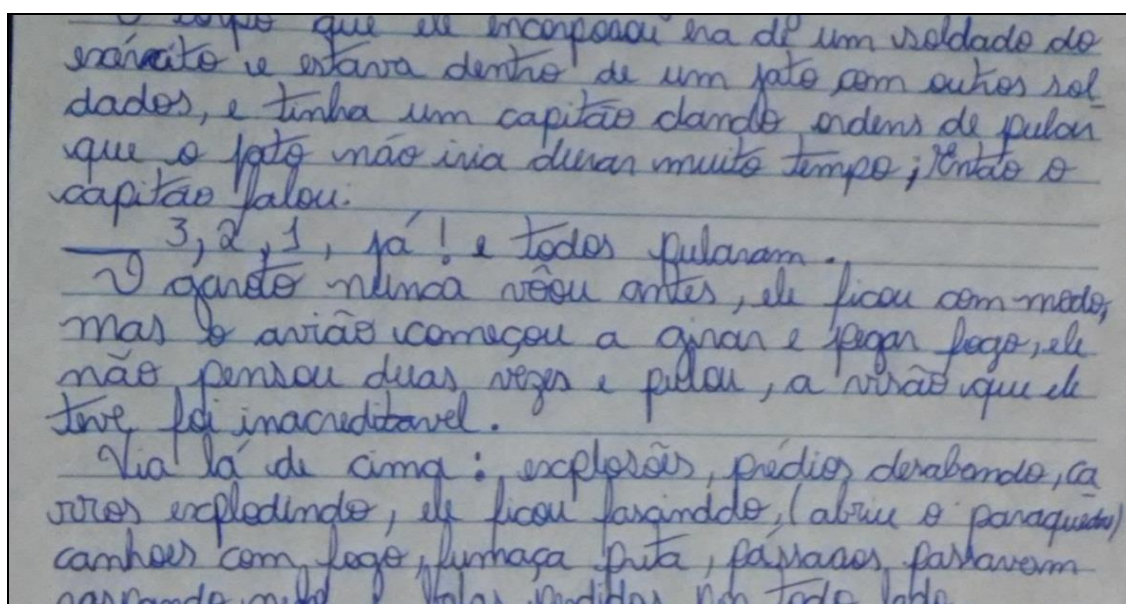 O corpo que ele incorporou era de um soldado do
exército e estava dentro de um jato com outros sol_
dados, e tinha um capitão dando ordens de pular
que o jato não iria durar muito tempo; então o
capitão falou:
__ 3, 2, 1, já! e todos pularam.
O garoto nunca vôou antes, ele ficou com medo,
mas o avião começou a girar e pegar fogo, ele
não pensou duas vezes e pulou, a visão que ele
teve foi inacreditavel.
Via lá de cima: explosões, prédios desabando, ca
rros explodindo, ele ficou fasciniddo, (abriu o paraquedas)
canhões com fogo, fumaça preta, pássaros passavam
raspando nele e balas perdidas por todo lado